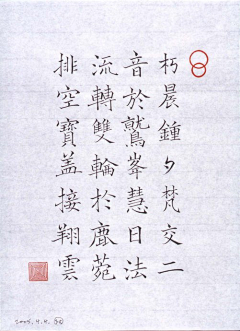 朽晨鍾夕梵交二
音於鷲峯慧日法
流轉雙輪於鹿菀
排空寶盖接翔雲
2005.4.4.